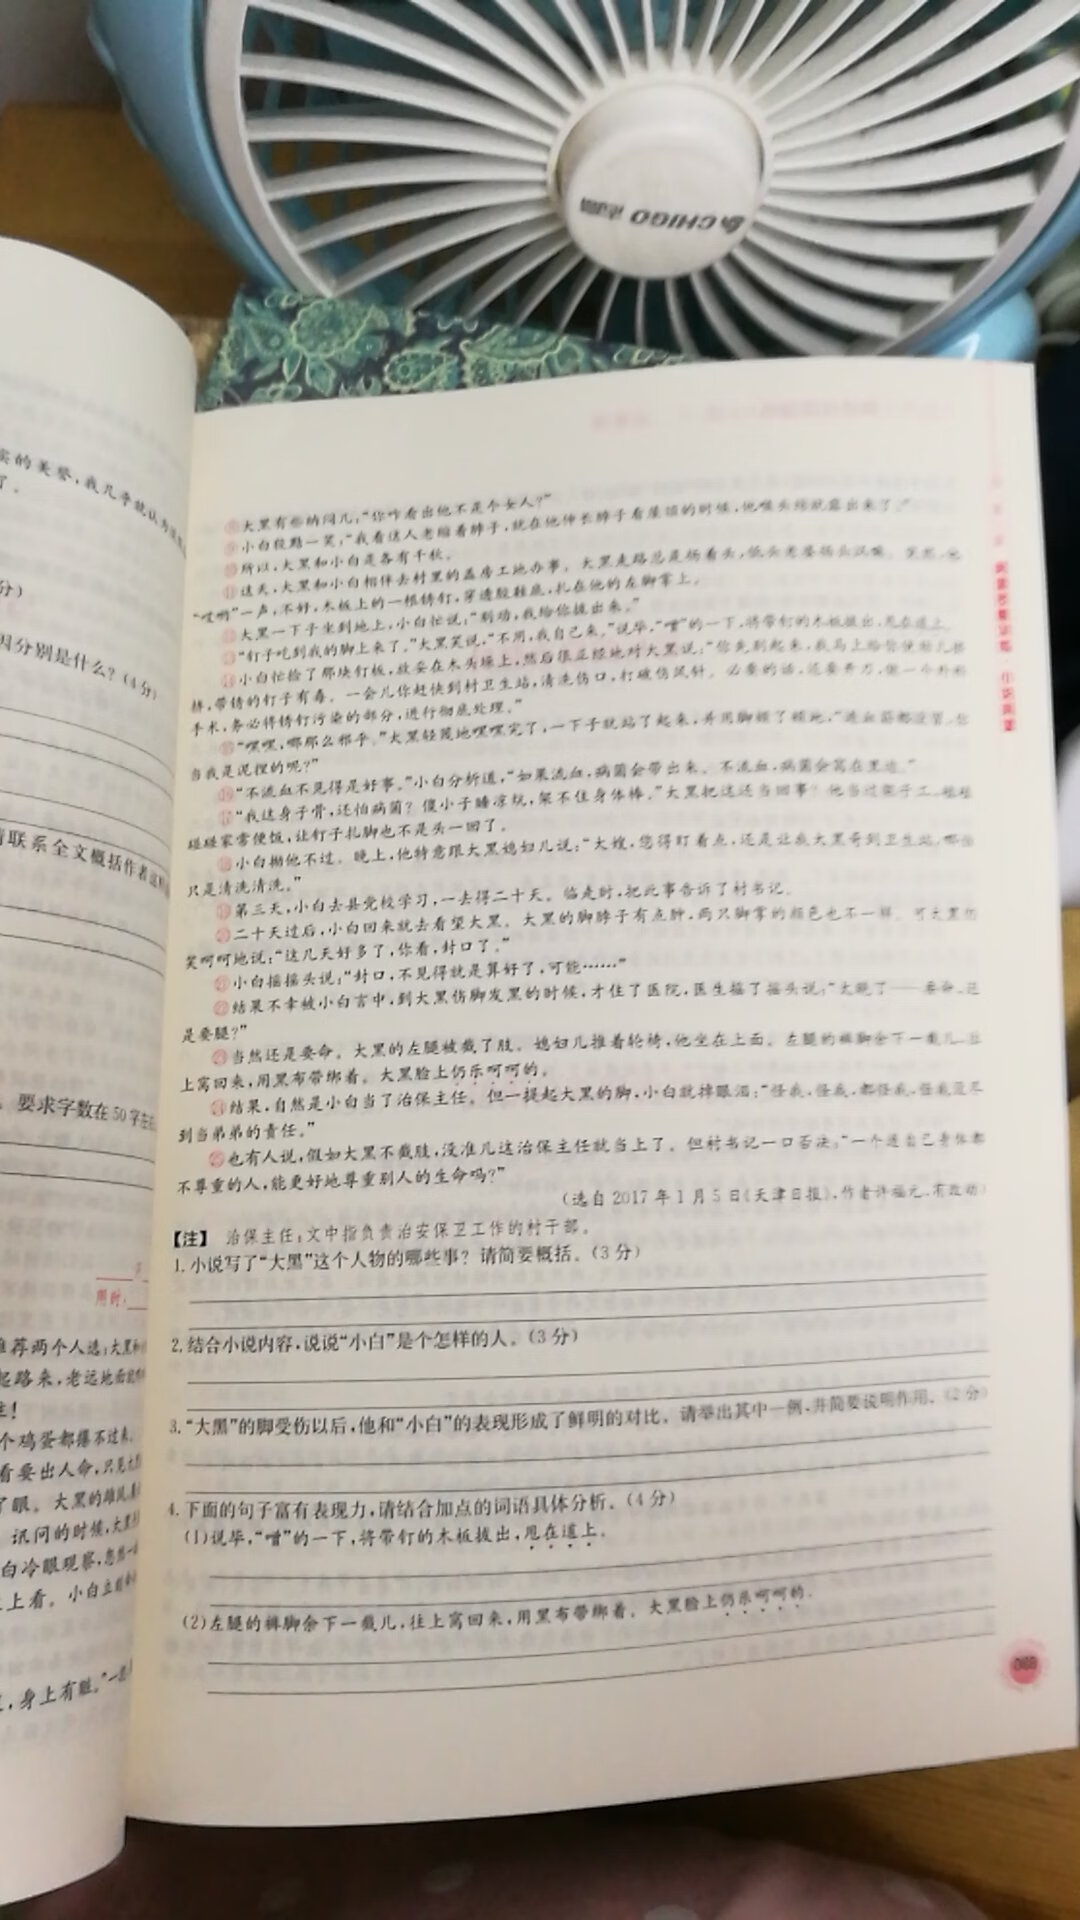 CHIGO 志高
实的美誉,我几乎就认为
了。
分)
因分别是什么?(4分)
请联系全文概括作者
。要求字数在50字左右
用时:
推荐两个人选:大黑和
起路来,老远地面就
个鸡蛋都攥不过来。
看要出人命,只见
了眼。大黑的雄风
讯问的时候,大黑
白冷眼观察,忽然一
上看。小白立即
,身上有赃。”
⑧大黑有些纳闷儿:“你咋看出他不是个女人?”
⑨小白狡黠一笑:“我看这人老缩着脖子,就在他伸长脖子看屋顶的时候,他喉头结就露出来了。”
⑩所以,大黑和小白是各有千秋。
⑪这天,大黑和小白相伴去村里的盖房工地办事。大黑走路总是扬着头,低头老婆扬头汉嘛。突然,他
“哎哟”一声,不好,木板上的一根锈钉,穿透胶鞋底,扎在他的左脚掌上。
⑫大黑一下子坐到地上,小白忙说:“别动,我给你拔出来。”
⑬“钉子吃到我的脚上来了。”大黑笑说,“不用,我自己来。”说毕,“噌”的一下,将带钉的木板拔出,甩在道上。
⑭小白忙捡了那块钉板,放妥在木头垛上,然后很正经地对大黑说:“你先别起来,我马上给你使劲儿挤
挤,带锈的钉子有毒。一会儿你赶快到村卫生站,清洗伤口,打破伤风针。必要的话,还要开刀,做一个外科
手术,务必将锈钉污染的部分,进行彻底处理。”
⑮“嘿嘿,哪那么邪乎。”大黑轻蔑地嘿嘿完了,一下子就站了起来,并用脚顿了顿地,“连血筋都没冒,你
当我是泥捏的呢?”
⑯“不流血不见得是好事。”小白分析道,“如果流血,病菌会带出来。不流血,病菌会窝在里边。”
⑰“我这身子骨,还怕病菌?傻小子睡凉炕,架不住身体棒。”大黑把这还当回事?他当过架子工,磕磕
碰碰家常便饭,让钉子扎脚也不是头一回了。
⑱小白拗他不过。晚上,他特意跟大黑媳妇儿说:“大嫂,您得盯着点,还是让我大黑哥到卫生站,哪怕
只是清洗清洗。”
⑲第三天,小白去县党校学习,一去得二十天。临走时,把此事告诉了村书记。
⑳二十天过后,小白回来就去看望大黑。大黑的脚脖子有点肿,两只脚掌的颜色也不一样。可大黑仍
笑呵呵地说:“这几天好多了,你看,封口了。”
㉑小白摇摇头说:“封口,不见得就是算好了,可能……”
㉒结果不幸被小白言中,到大黑伤脚发黑的时候,才住了医院,医生摇了摇头说:“太晚了——要命,还
是要腿?”
㉓当然还是要命。大黑的左腿被截了肢。媳妇儿推着轮椅,他坐在上面。左腿的裤脚余下一截儿,往
上窝回来,用黑布带绑着。大黑脸上仍乐呵呵的。
㉔结果,自然是小白当了治保主任。但一提起大黑的脚,小白就掉眼泪:“怪我,怪我,都怪我,怪我没尽
到当弟弟的责任。”
㉕也有人说,假如大黑不截肢,没准儿这治保主任就当上了。但村书记一口否决:“一个连自己身体都
不尊重的人,能更好地尊重别人的生命吗?”
(选自2017年1月5日《天津日报》,作者许福元,有改动)
【注】 治保主任:文中指负责治安保卫工作的村干部。
1.小说写了“大黑”这个人物的哪些事?请简要概括。(3分)
2.结合小说内容,说说“小白”是个怎样的人。(3分)
3.“大黑”的脚受伤以后,他和“小白”的表现形成了鲜明的对比。请举出其中一例,并简要说明作用。(2分)
4.下面的句子富有表现力,请结合加点的词语具体分析。(4分)
(1)说毕,“噌”的一下,将带钉的木板拔出,甩在道上。
(2)左腿的裤脚余下一截儿,往上窝回来,用黑布带绑着。大黑脸上仍乐呵呵的。